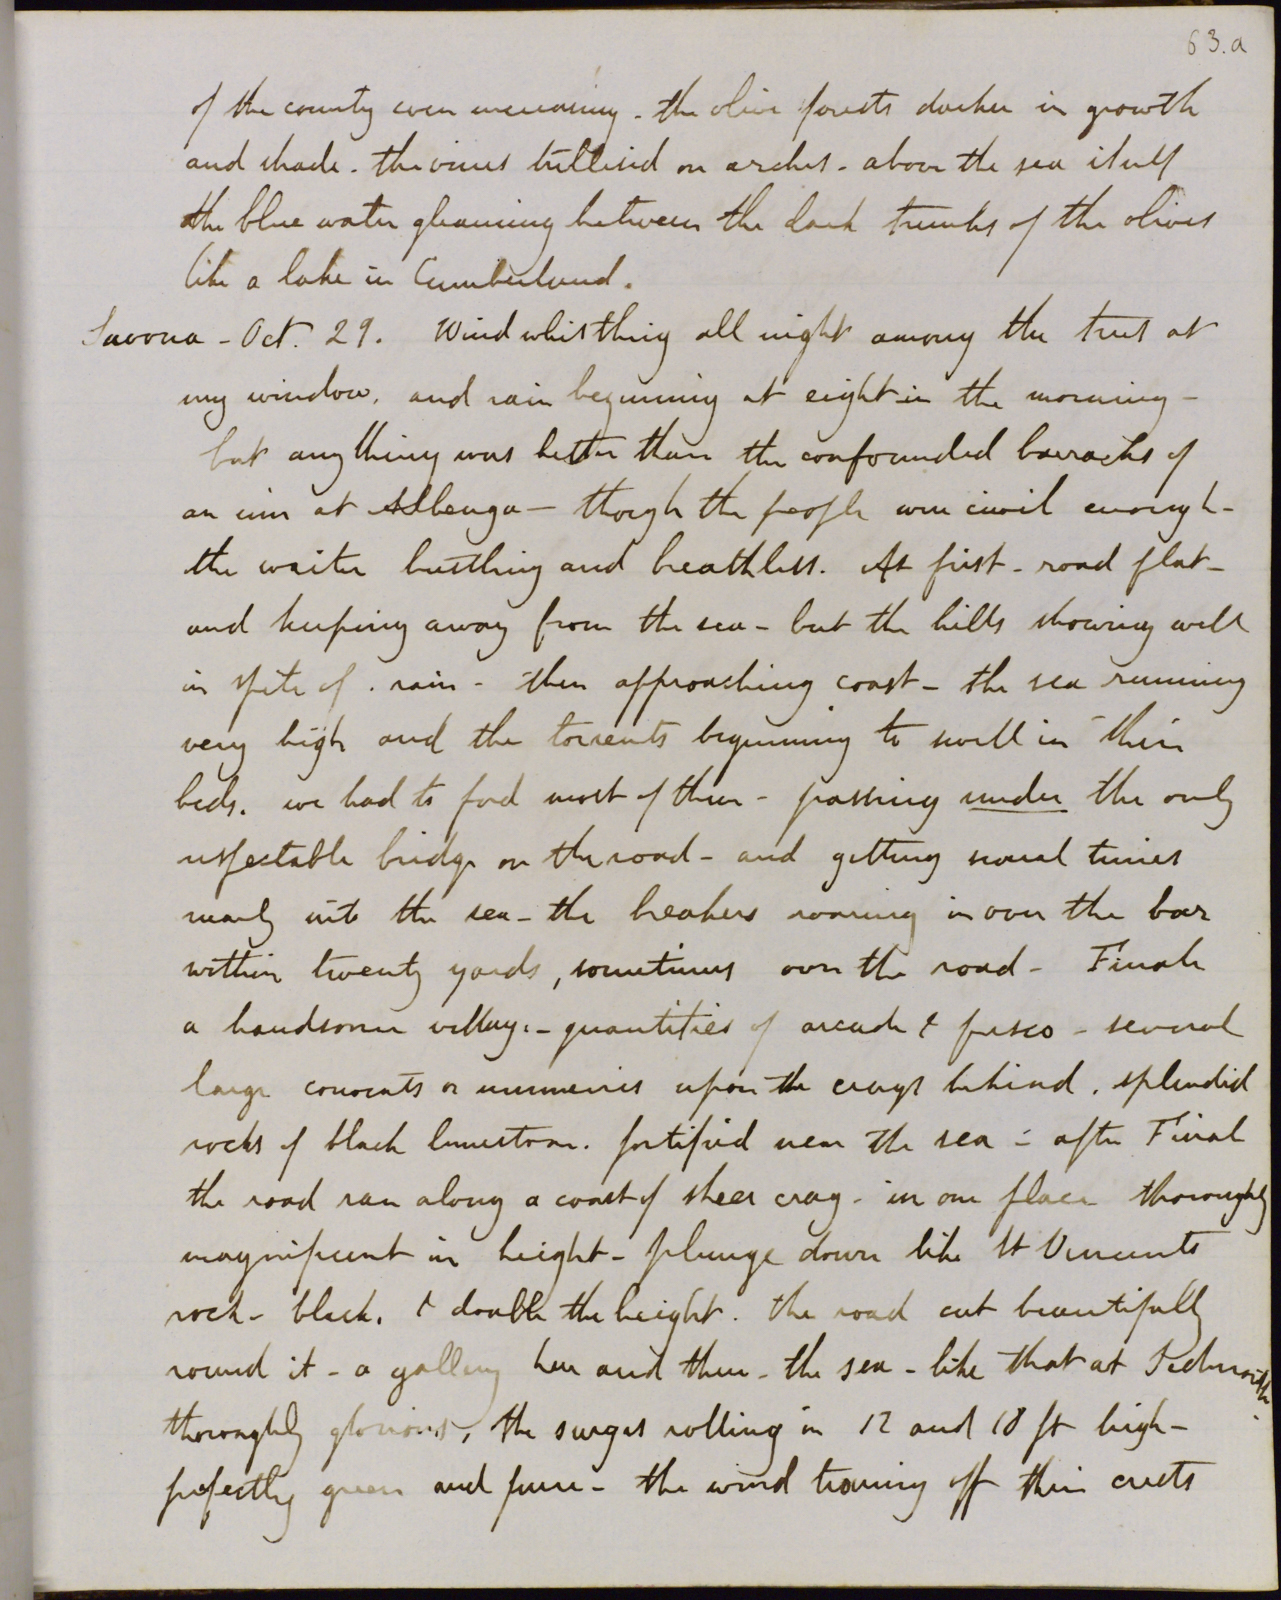 63.a
of the country even increasing - the olive forests darker in growth
and shade - the vines trellised on arches - above the sea itself
the blue water gleaming between the dark trunks of the olives
like a lake in Cumberland.
Savona - Oct. 29. Wind whistling all night among the trees at
my window, and rain beginning at eight in the morning -
but anything was better than the confounded barracks of
an inn at Albenga - though the people were civil enough -
the waiter bustling and breathless. At first - road flat -
and keeping away from the sea - but the hills showing well
in spite of . rain - then approaching coast - the sea running
very high and the torrents beginning to swell in their
beds. we had to ford most of them - passing under the only
respectable bridge on the road - and getting several times
nearly into the sea - the breakers roaring in over the bar
within twenty yards, sometimes over the road - Finale
a handsome village - quantities of arcade & fresco - several
large convents or nunneries upon the crags behind. splendid
rocks of black limestone. fortified near the sea - after Final
the road ran along a coast of sheer crag - in one place thoroughly
magnificent in height - plunge down like St Vincents
rock - black, & double the height. the road cut beautifully
round it - a gallery here and there - the sea - like that at
thoroughly glorious, the surges rolling in 12 and 18 ft high -
perfectly green and pure - the wind tearing off their crests